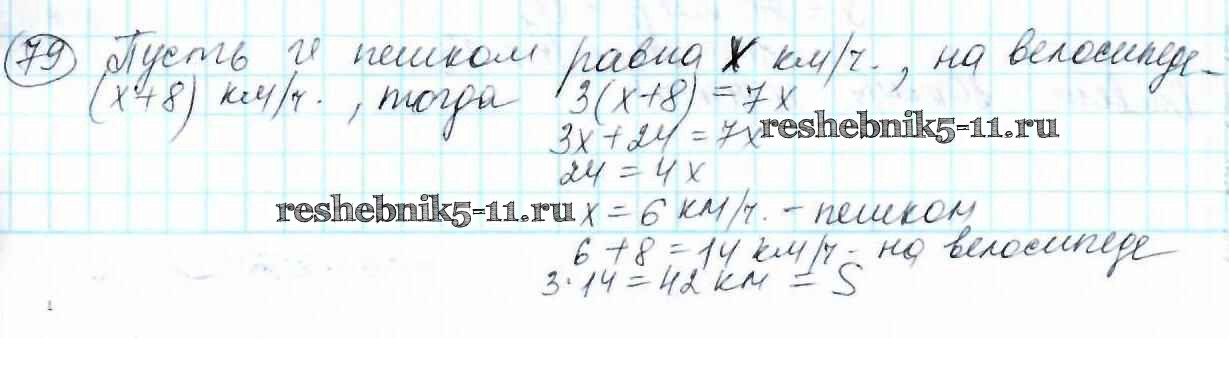 79 Пусть υ пешком равна x км/ч., на велосипеде-
(x+8) км/ч., тогда 3(x+8) = 7x
3x+24 = 7x reshebnik5-11.ru
24 = 4x
reshebnik5-11.ru x = 6 км/ч. - пешком
6+8 = 14 км/ч - на велосипеде
3·14 = 42 км = S